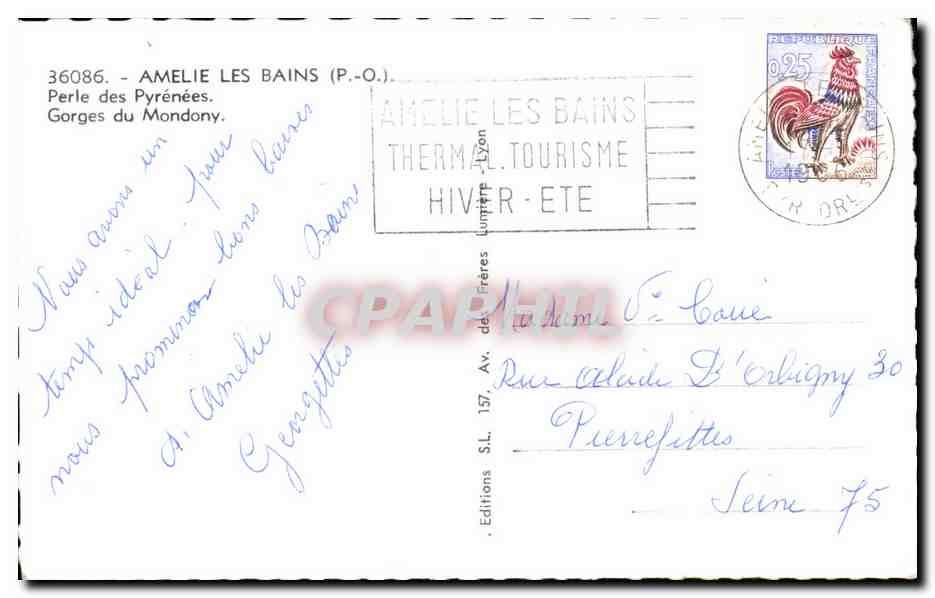 36086. - AMELIE LES BAINS (P.-O.).
Perle des Pyrénées.
Gorges du Mondony.
Nous avons un
temps idéal. pour
nous promener bons baisers
d'Amelie les Bains
Georgettes
AMELIE LES BAINS
THERMAL. TOURISME
HIVER - ETE
REPUBLIQUE FRANÇAISE
0,25
POSTES
PYR. ORLES
CPAPHIL
. Editions S.L. 157, Av. des Frères Lumière - Lyon
Madame Ve
Rue Alcide D'Orbigny 30
Pierrefittes
Seine 75